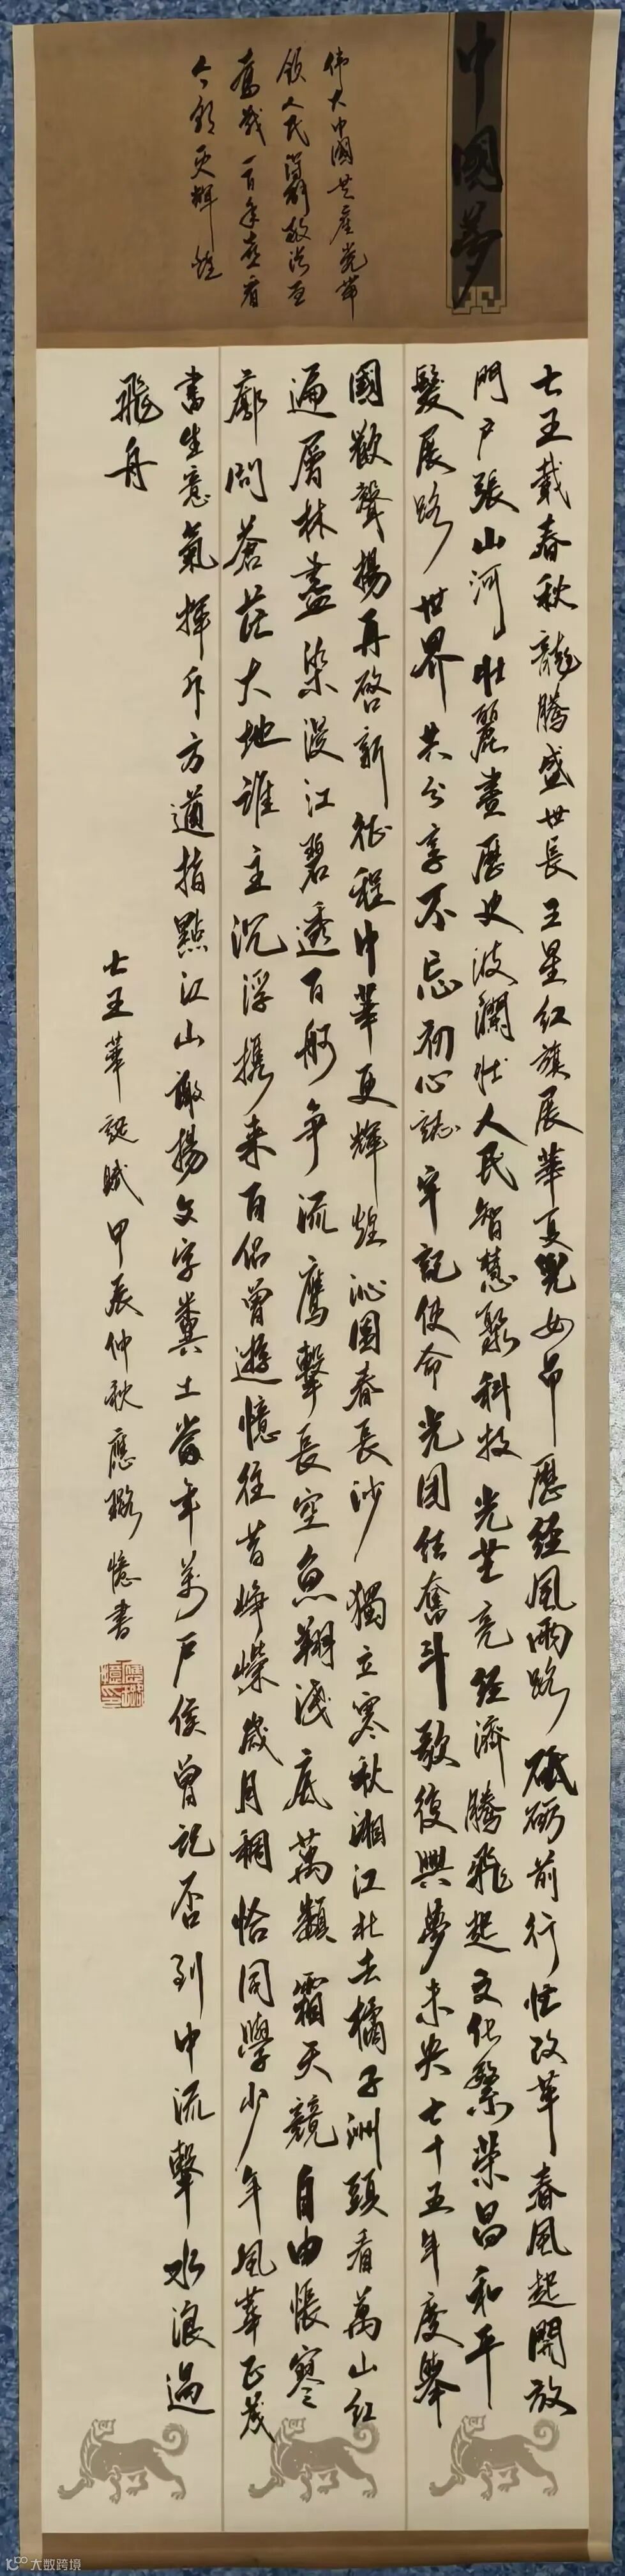 中國夢
伟大中國共産党带
領人民謀解放浴血
奮戰一百年喜看
今朝更輝煌
七五載春秋龍騰盛世長五星红旗展華夏兒女昂歷经風雨路砥砺前行性改革春風起開放
門户張山河壮麗畫歷史波瀾壮人民智慧聚科技光芒亮经濟騰飛起文化繁荣昌和平
發展路世界共分享不忘初心誌牢記使命光团结奮斗歌復興夢未央七十五年度舉
國歡聲揚再啓新征程中華更輝煌沁園春長沙獨立寒秋湘江北去橘子洲頭看萬山红
遍層林盡染漫江碧透百舸争流鷹擊長空魚翔淺底萬類霜天競自由悵寥
廓問蒼茫大地誰主沉浮携来百侣曾遊憶往昔峥嵘歲月稠恰同學少年風華正茂
書生意氣揮斥方遒指點江山激揚文字糞土當年萬户侯曾記否到中流擊水浪遏
飛舟
七五華誕賦甲辰仲秋應璐憶書
大数跨境